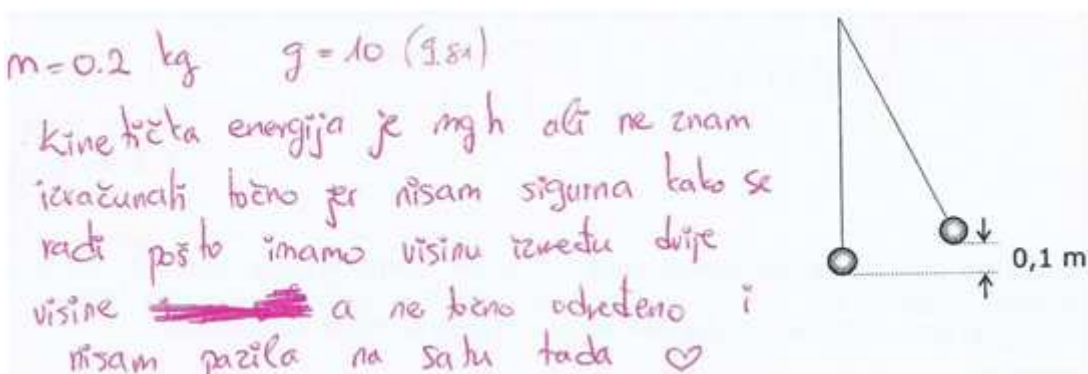 m = 0.2 kg g = 10 (9.81)
Kinetička energija je mgh ali ne znam
izračunati točno jer nisam sigurna kako se
radi pošto imamo visinu između dvije
visine a ne točno određeno i
nisam pazila na satu tada ♡
0,1 m